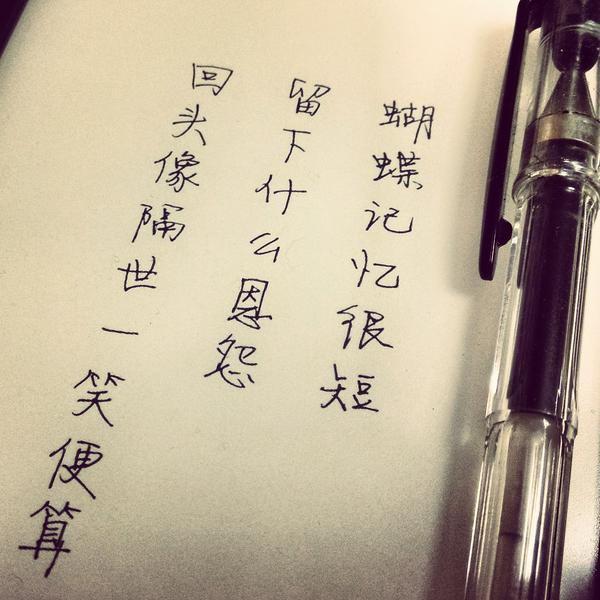 蝴蝶记忆很短
留下什么恩怨
回头像隔世一笑便算